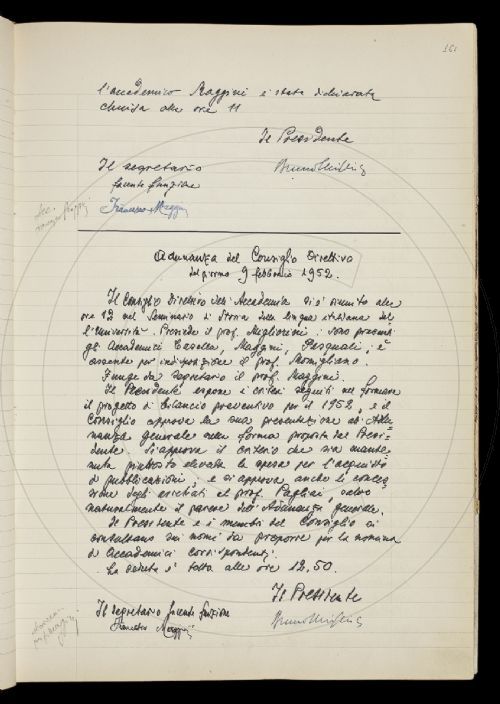 161
l'accademico Maggini è stata dichiarata
chiusa alle ore 11
Il Presidente
Il segretario
facente funzione
Bruno Migliorini
Francesco Maggini
Adunanza del Consiglio Direttivo
del giorno 9 febbraio 1952.
Il Consiglio Direttivo dell'Accademia si è riunito alle
ore 12 nel Seminario di Storia della lingua italiana del
l'Università. Presiede il prof. Migliorini: sono presenti
gli Accademici Casella, Maggini, Pasquali; è
assente per indisposizione il prof. Momigliano.
Funge da segretario il prof. Maggini.
Il Presidente espone i criteri seguiti nel formare
il progetto di bilancio preventivo per il 1952, e il
Consiglio approva la sua presentazione all'Adu-
nanza generale nella forma proposta dal Presi-
dente. Si approva il criterio che sia mante-
nuta piuttosto elevata la spesa per l'acquisto
di pubblicazioni, e si approva anche la conces-
sione degli arretrati al prof. Pagliai, salvo
naturalmente il parere dell'Adunanza generale.
Il Presidente e i membri del Consiglio si
consultano sui nomi da proporre per la nomina
di Accademici corrispondenti.
La seduta è tolta alle ore 12,50.
Il Presidente
Il segretario facente funzione
Bruno Migliorini
Francesco Maggini